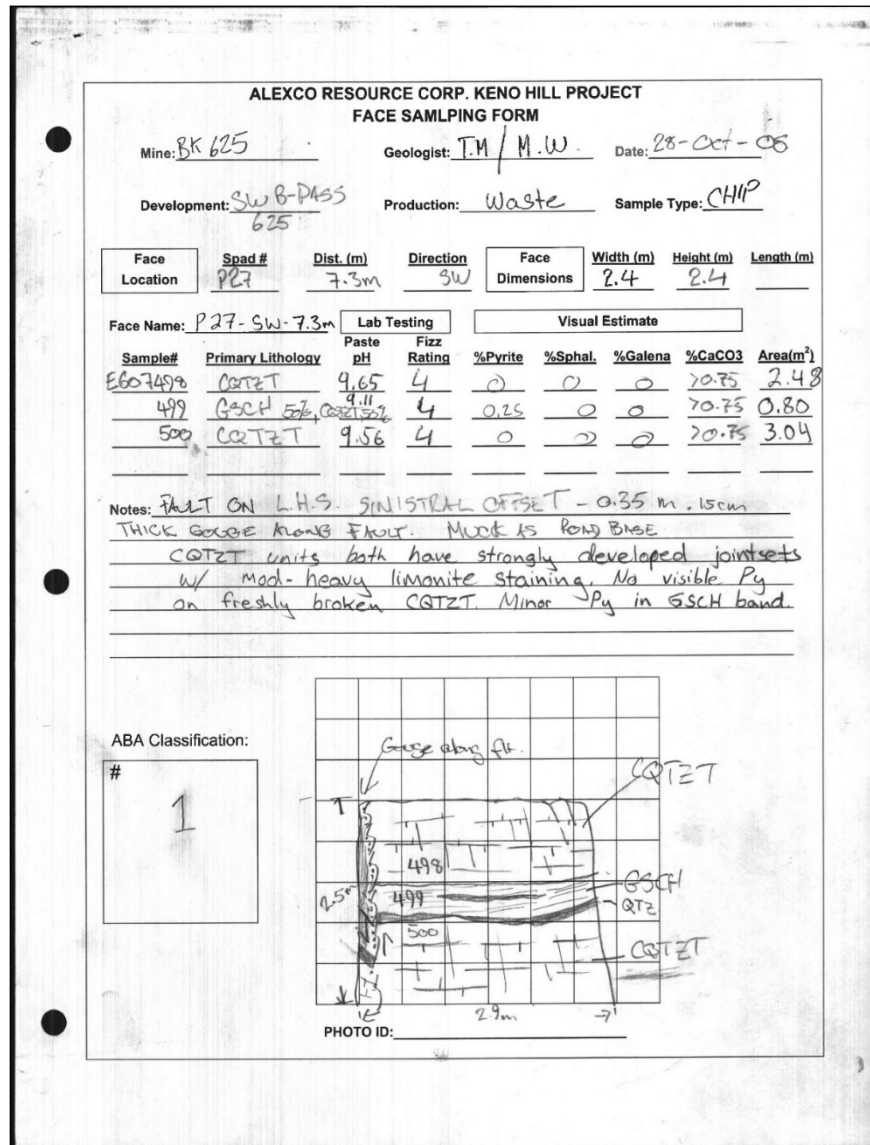 ALEXCO RESOURCE CORP. KENO HILL PROJECT
FACE SAMLPING FORM
Mine: BK 625 Geologist: T.M / M.W. Date: 28-Oct-08
Development: SW B-PASS 625 Production: Waste Sample Type: CHIP
Face Location Spad # Dist. (m) Direction Face Dimensions Width (m) Height (m) Length (m)
P27 7.3m SW 2.4 2.4
Face Name: P27-SW-7.3m Lab Testing Visual Estimate
Sample# Primary Lithology Paste pH Fizz Rating %Pyrite %Sphal. %Galena %CaCO3 Area(m²)
E607498 CQTZT 9.65 4 0 0 0 >0.75 2.48
499 GSCH 50%, CQTZT 50% 9.11 4 0.25 0 0 >0.75 0.80
500 CQTZT 9.56 4 0 0 0 >0.75 3.04
Notes: FAULT ON L.H.S. SINISTRAL OFFSET - 0.35 m. 15cm
THICK GOUGE ALONG FAULT. MUCK AS ROAD BASE
CQTZT units both have strongly developed jointsets
w/ mod-heavy limonite staining. No visible Py
on freshly broken CQTZT. Minor Py in GSCH band.
ABA Classification:
#
1
Gouge along flt.
CQTZT
498
GSCH
2.5m
499
QTZ
500
CQTZT
2.9m
PHOTO ID: